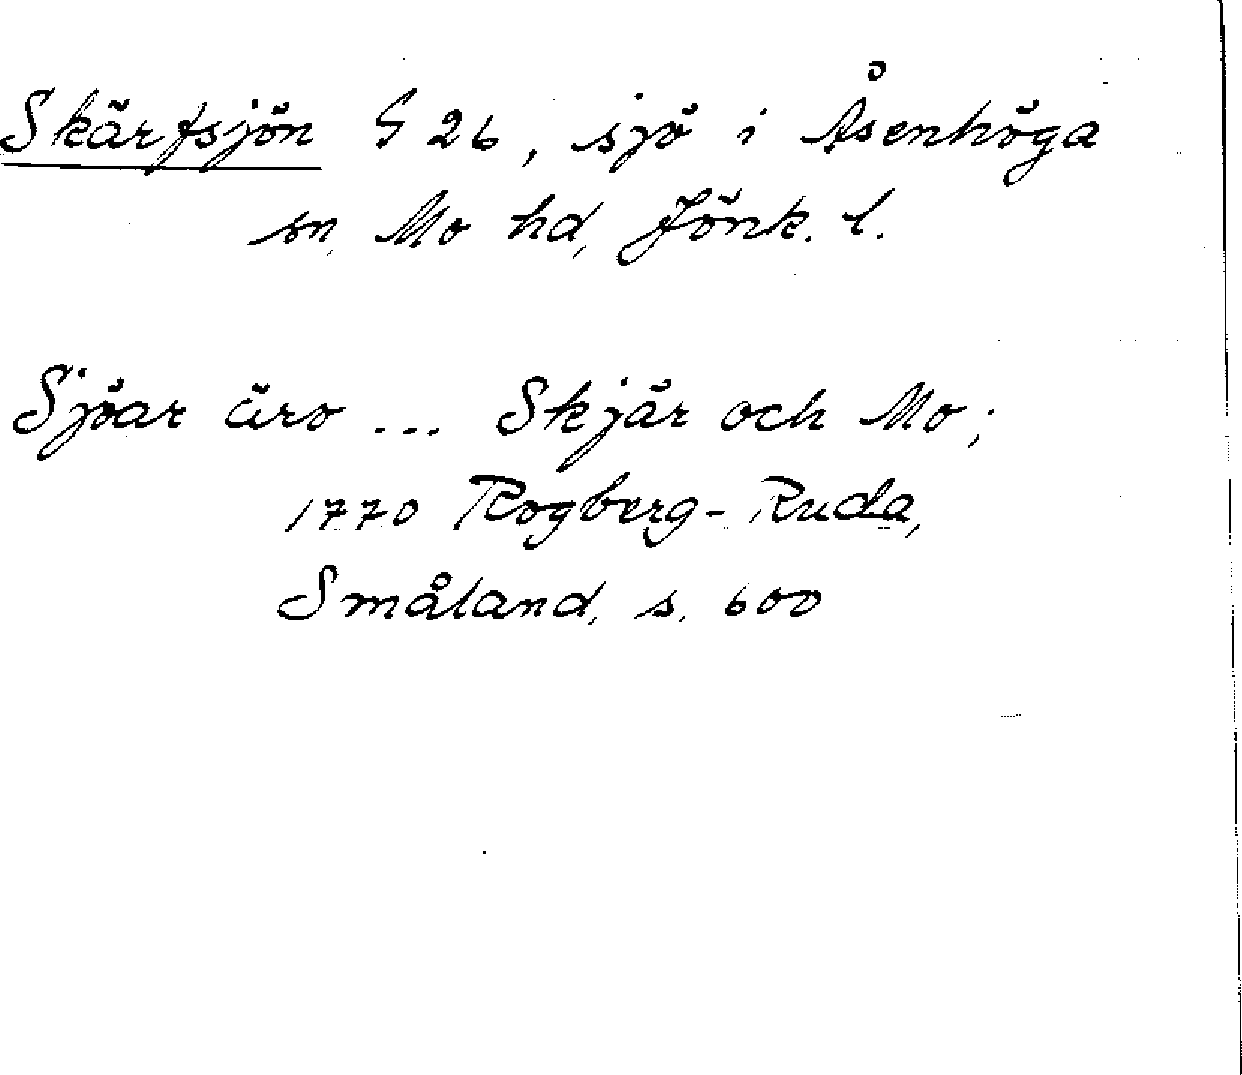 Skärfsjön G 26, sjö i Åsenhöga
sn, Mo hd, Jönk. l.
Sjöar äro ... Skjär och Mo;
1770 Rogberg-Ruda,
Småland, s. 600